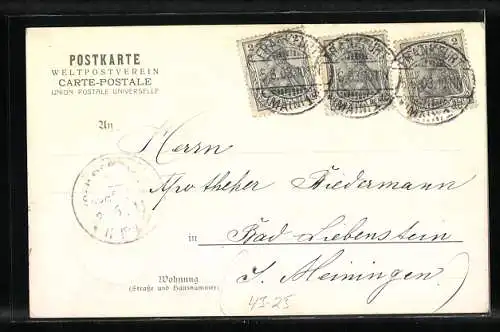 POSTKARTE
WELTPOSTVEREIN
CARTE-POSTALE
UNION POSTALE UNIVERSELLE
2 2 2
FRANKFURT
(MAIN)
An
Herrn
Apotheker Biedermann
in Bad Liebenstein
S. Meiningen
Wohnung
(Straße und Hausnummer)
43-25